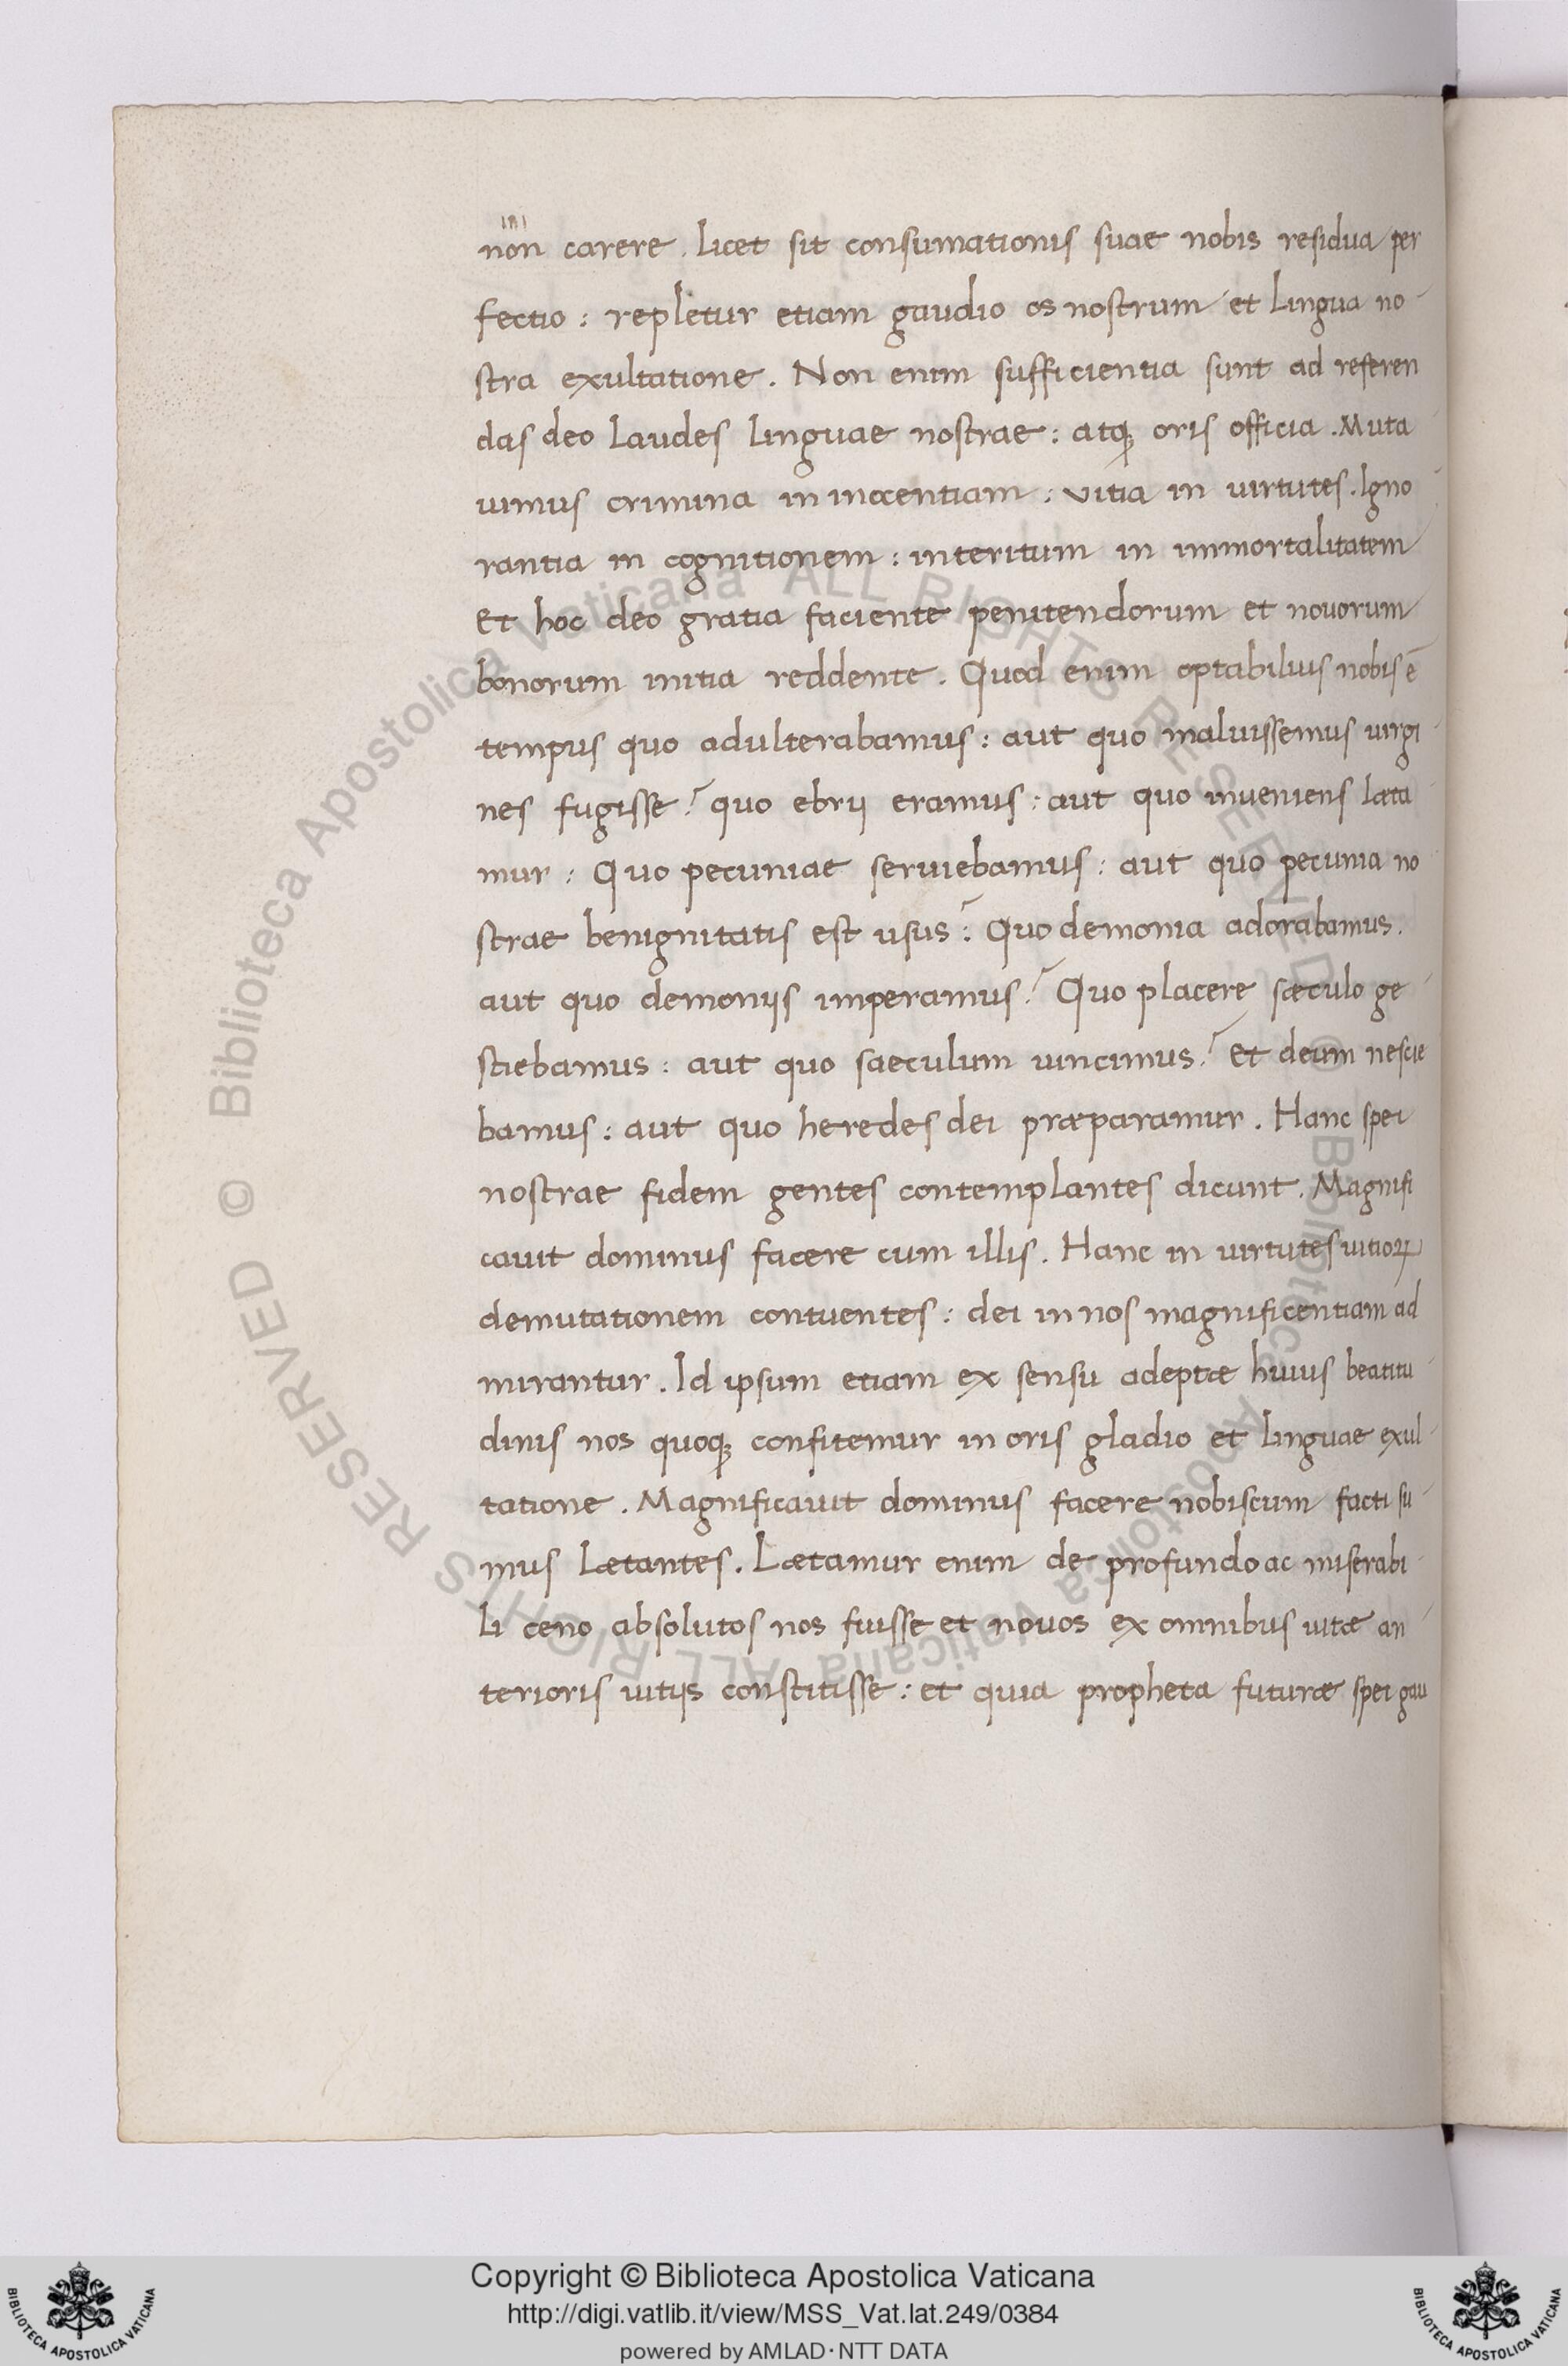 non carere. licet sit consumationis suae nobis residua per
fectio: repletur etiam gaudio os nostrum et lingua no
stra exultatione. Non enim sufficientia sunt ad referen
das deo laudes linguae nostrae: atq; oris officia. Muta
uimus crimina in inocentiam: vitia in uirtutes. Igno
rantia in cognitionem: interitum in immortalitatem
Et hoc deo gratia faciente penitendorum et nouorum
bonorum initia reddente. Quod enim optabilius nobis ē
tempus quo adulterabamus: aut quo maluissemus uirgi
nes fugisse? quo ebrij eramus: aut quo inueniens læta
mur: Quo pecuniae seruiebamus: aut quo pecunia no
strae benignitatis est usus? Quo demonia adorabamus.
aut quo demonijs imperamus? Quo placere sæculo ge
stiebamus: aut quo saeculum uincimus? Et deum nescie
bamus: aut quo heredes dei præparamur. Hanc spei
nostrae fidem gentes contemplantes dicunt. Magnifi
cauit dominus facere cum illis. Hanc in uirtutes uitioꝝ
demutationem contuentes: dei in nos magnificentiam ad
mirantur. Id ipsum etiam ex sensu adeptæ huius beatitu
dinis nos quoq; confitemur in oris gladio et linguae exul
tatione. Magnificauit dominus facere nobiscum facti su
mus lætantes. Lætamur enim de profundo ac miserabi
li ceno absolutos nos fuisse et nouos ex omnibus uitæ an
terioris uitijs constitisse: et quia propheta futuræ spei gau
© Biblioteca Apostolica Vaticana ALL RIGHTS RESERVED © Biblioteca Apostolica Vaticana ALL RIGHTS RESERVED
Copyright © Biblioteca Apostolica Vaticana
http://digi.vatlib.it/view/MSS_Vat.lat.249/0384
powered by AMLAD·NTT DATA
BIBLIOTECA APOSTOLICA VATICANA
BIBLIOTECA APOSTOLICA VATICANA